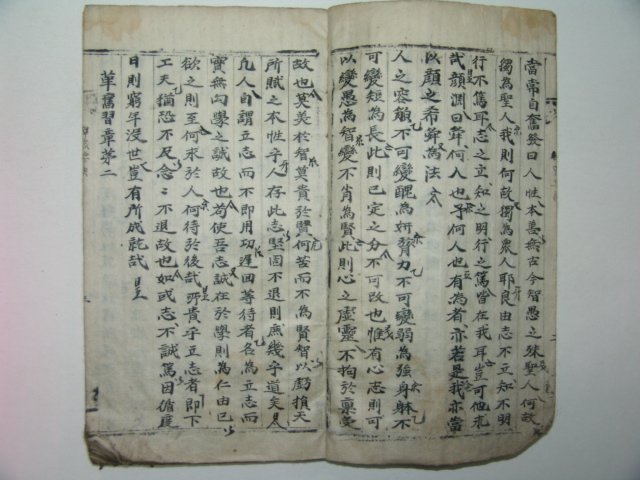 當常自奮發曰人性本善無古今智愚之殊聖人何故
獨為聖人我則何故獨為衆人耶良由志不立知不明
行不篤耳志之立知之明行之篤皆在我耳豈可他求
哉顔淵曰舜何人也予何人也有為者亦若是我亦當
以顔之希舜為法
人之容貌不可變醜為妍膂力不可變弱為強身躰不
可變短為長此則已定之分不可改也惟有心志則可
以變愚為智變不肖為賢此則心之虛靈不拘於稟受
故也莫美於智莫貴於賢何苦而不為賢智以虧損天
所賦之本性乎人存此志堅固不退則庶幾乎道矣
凡人自謂立志而不即用功遲回等待者名為立志而
實無向學之誠故也苟使吾志誠在於學則為仁由己
欲之則至何求於人何待於後哉所貴乎立志者即下
工夫猶恐不及念念不退故也如或志不誠篤因循度
日則窮年沒世豈有所成就哉
革舊習章第二